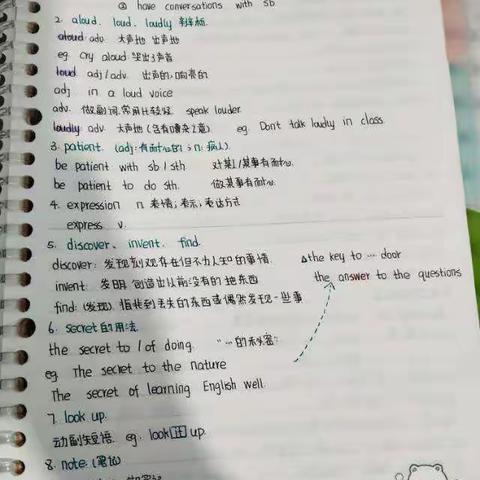 ③ have conversations with sb
2. aloud. loud. loudly 辨析.
aloud adv. 大声地 出声地
eg. cry aloud 哭出了声音
loud adj/adv. 出声的,响亮的
adj in a loud voice
adv. 做副词.常用比较级 speak louder.
loudly adv. 大声地 (含有嘈杂之意) eg. Dont talk loudly in class.
3. patient. (adj:有耐心的;n:病人).
be patient with sb/sth 对某人/某事有耐心.
be patient to do sth. 做某事有耐心.
4. expression n 表情;表示,表达方式
express v.
5. discover、invent. find.
discover: 发现刻观存在但不为人知的事情. △the key to … door
invent: 发明 创造出以前没有的 地东西 the answer to the questions
find: (发现). 指找到丢失的东西或偶然发现一些事
6. secret的用法.
the secret to / of doing. "…的秘密"
eg The secret to the nature
The secret of learning English well.
7. look up.
动副短语. eg: look 正 up.
8. note:(笔记)